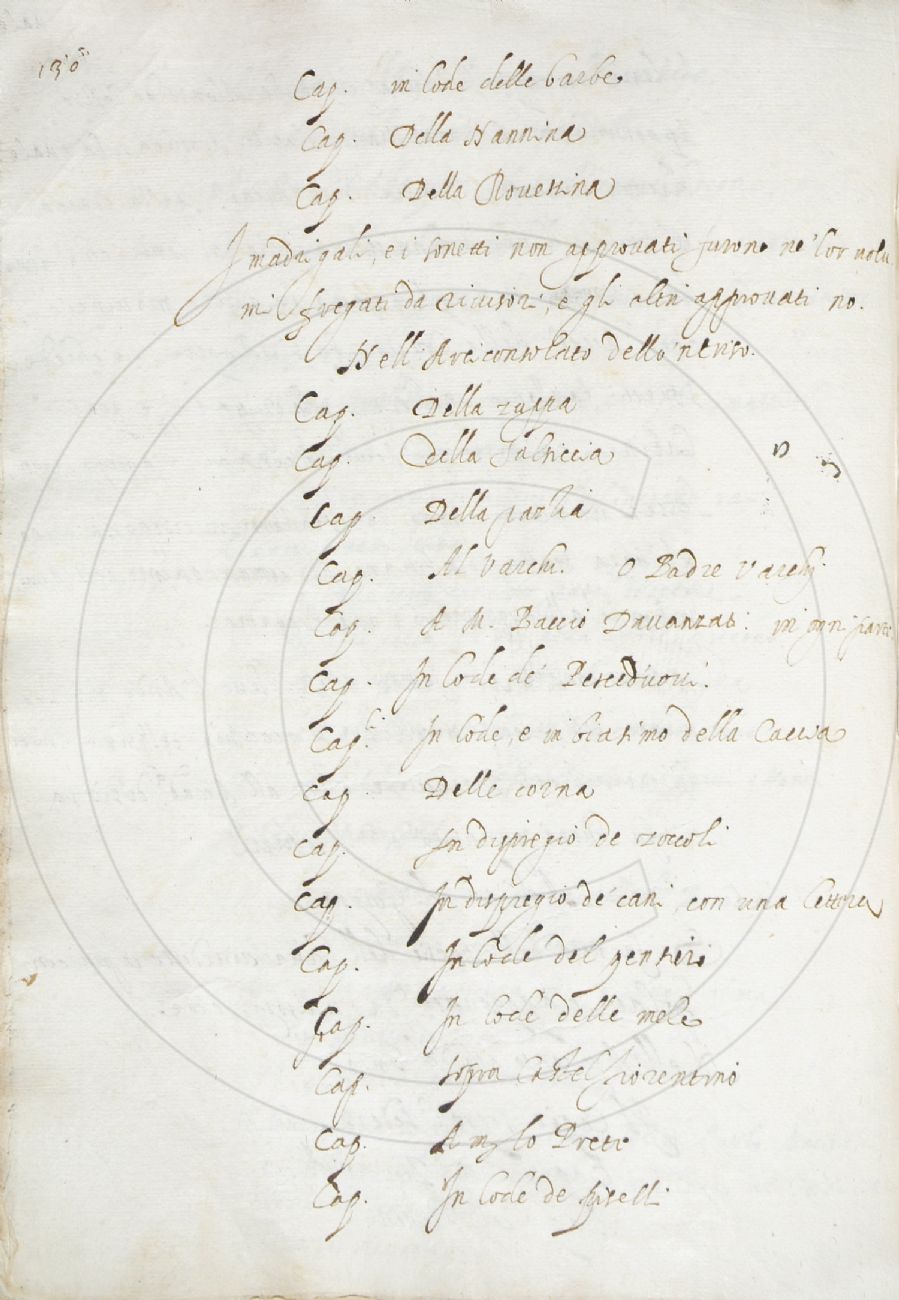 130
Cap. in lode delle barbe
Cap. Della Nannina
Cap. Della Rouestina
I madrigali, e i sonetti non approuati furono ne' lor uolu
mi fregati da riuisori, e gli altri approuati no.
Nell'Arciconsolato dello 'ntriso.
Cap. Della zuppa
Cap. della salsiccia
Cap. Della paglia
Cap. Al Varchi. O Padre Varchj
Cap. A M. Baccio Dauanzati: in ogni parte
Cap. In lode de' Pesceduoui.
Capⁱ. In lode, e in biasimo della Caccia
Cap. Delle corna
Cap. In dispregio de zoccoli
Cap. In dispregio de' cani, con una lettera
Cap. In lode del
Cap. In lode delle mele
Cap. sopra Castel fiorentino
Cap. A m. lo Prete
Cap. In lode de piselli